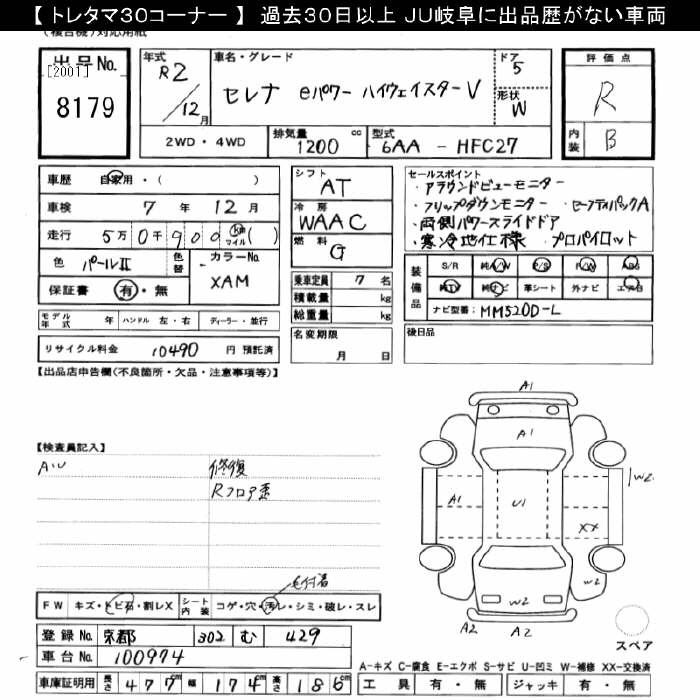 【 トレタマ30コーナー 】 過去30日以上 JU岐阜に出品歴がない車両
(複合機)対応用紙
出品No. [2001] 8179
年式 R2/12月
車名・グレード セレナ eパワー ハイウェイスターV
ドア 5
形状 W
2WD・4WD
排気量 1200 cc
型式 6AA - HFC27
評価点 R
内装 B
車歴 自家用・( )
車検 7年 12月
走行 5万 0千 900 km マイル( )
色 パールⅡ
色替
カラーNo. XAM
保証書 有・無
シフト AT
冷房 WAAC
燃料 G
乗車定員 7 名
積載量 kg
総重量 kg
名変期限 月 日
セールスポイント
・アラウンドビューモニター
・フリップダウンモニター ・セーフティパックA
・両側パワースライドドア
・寒冷地仕様 ・プロパイロット
装備品 S/R 純A/W P/S P/W ABS
純TV 純ナビ 革シート 外ナビ エアB
ナビ型番: MM520D-L
後日品
モデル年式 年 ハンドル 左・右 ディーラー・並行
リサイクル料金 10490 円 預託済
【出品店申告欄(不良箇所・欠品・注意事項等)】
【検査員記入】
A・U
修復
Rフロア歪
A1
A1
A1
U1
XX
W2
W2
W2
A2
A2
スペア
FW キズ・トビ石・割レX
シート内装 コゲ・穴・汚レ・シミ・破レ・スレ
登録No. 京都 302 む 429
車台No. 100974
車庫証明用 長さ 477cm 幅 174cm 高さ 186cm
A-キズ C-腐食 E-エクボ S-サビ U-凹ミ W-補修 XX-交換済
工具 有・無 ジャッキ 有・無